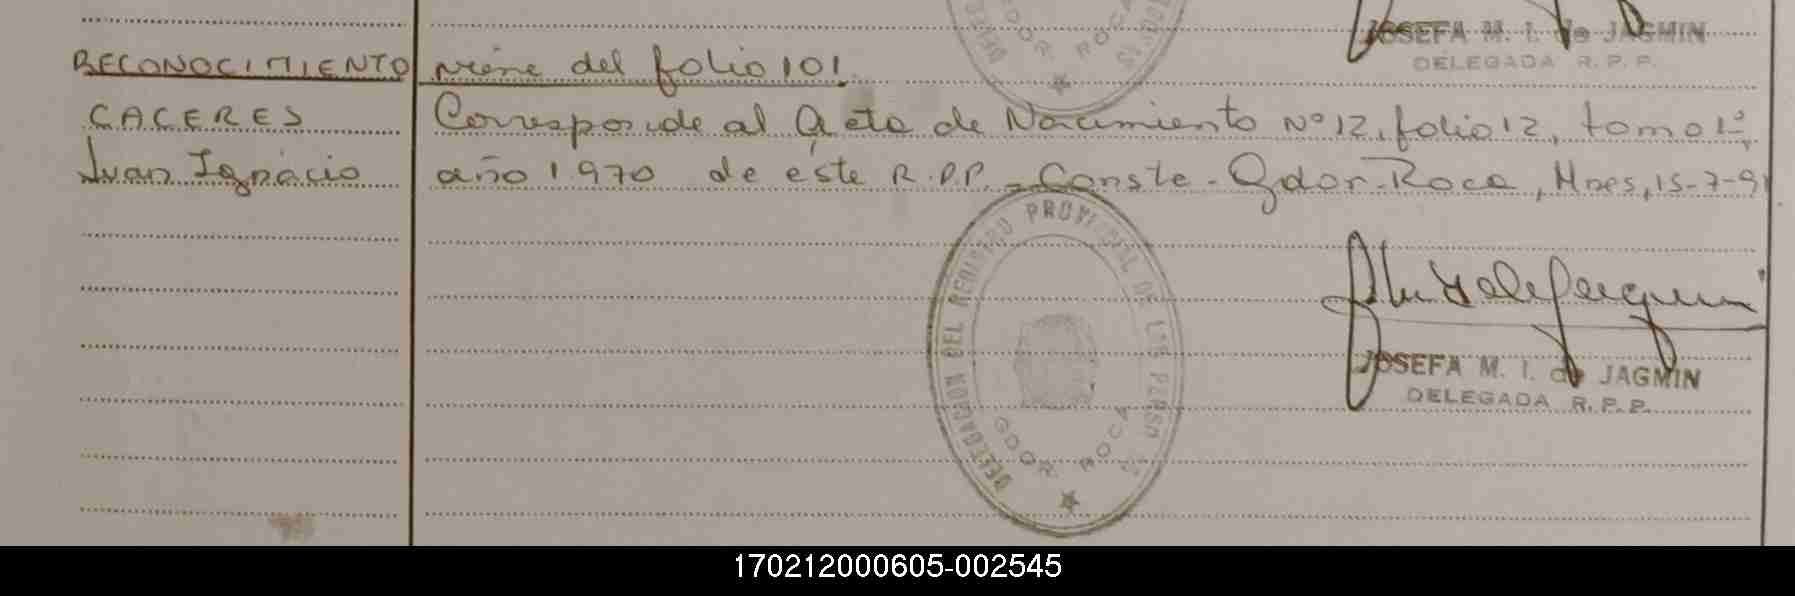 JOSEFA M. I. de JAGMIN
DELEGADA R. P. P.
GDOR ROCA
RECONOCIMIENTO viene del folio 101.
CACERES Corresponde al Acta de Nacimiento Nº 12, folio 12, tomo 1º,
Juan Ignacio año 1970 de este R.P.P. - Conste - Gdor. Roca, Mnes, 15-7-91
DELEGACION DEL REGISTRO PROVINCIAL DE LAS PERSONAS
GDOR ROCA
JOSEFA M. I. de JAGMIN
DELEGADA R. P. P.
170212000605-002545